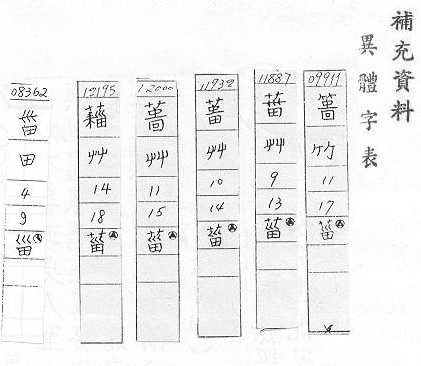 補充資料
異體字表
09911
竹
11
17
菑
11887
艸
9
13
菑
11932
艸
10
14
菑
12000
艸
11
15
菑
12195
艸
14
18
菑
08362
田
4
9